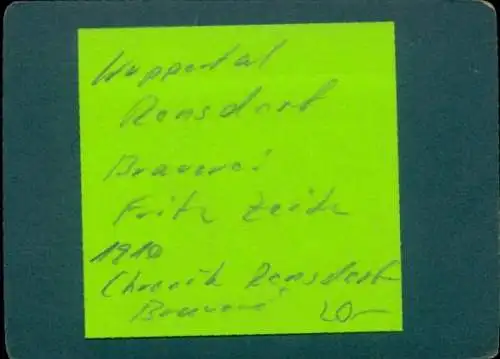 Wuppertal
Ronsdorf
Brauerei
Fritz Zeitz
1910
Chronik Ronsdorf
Brauerei 20,-